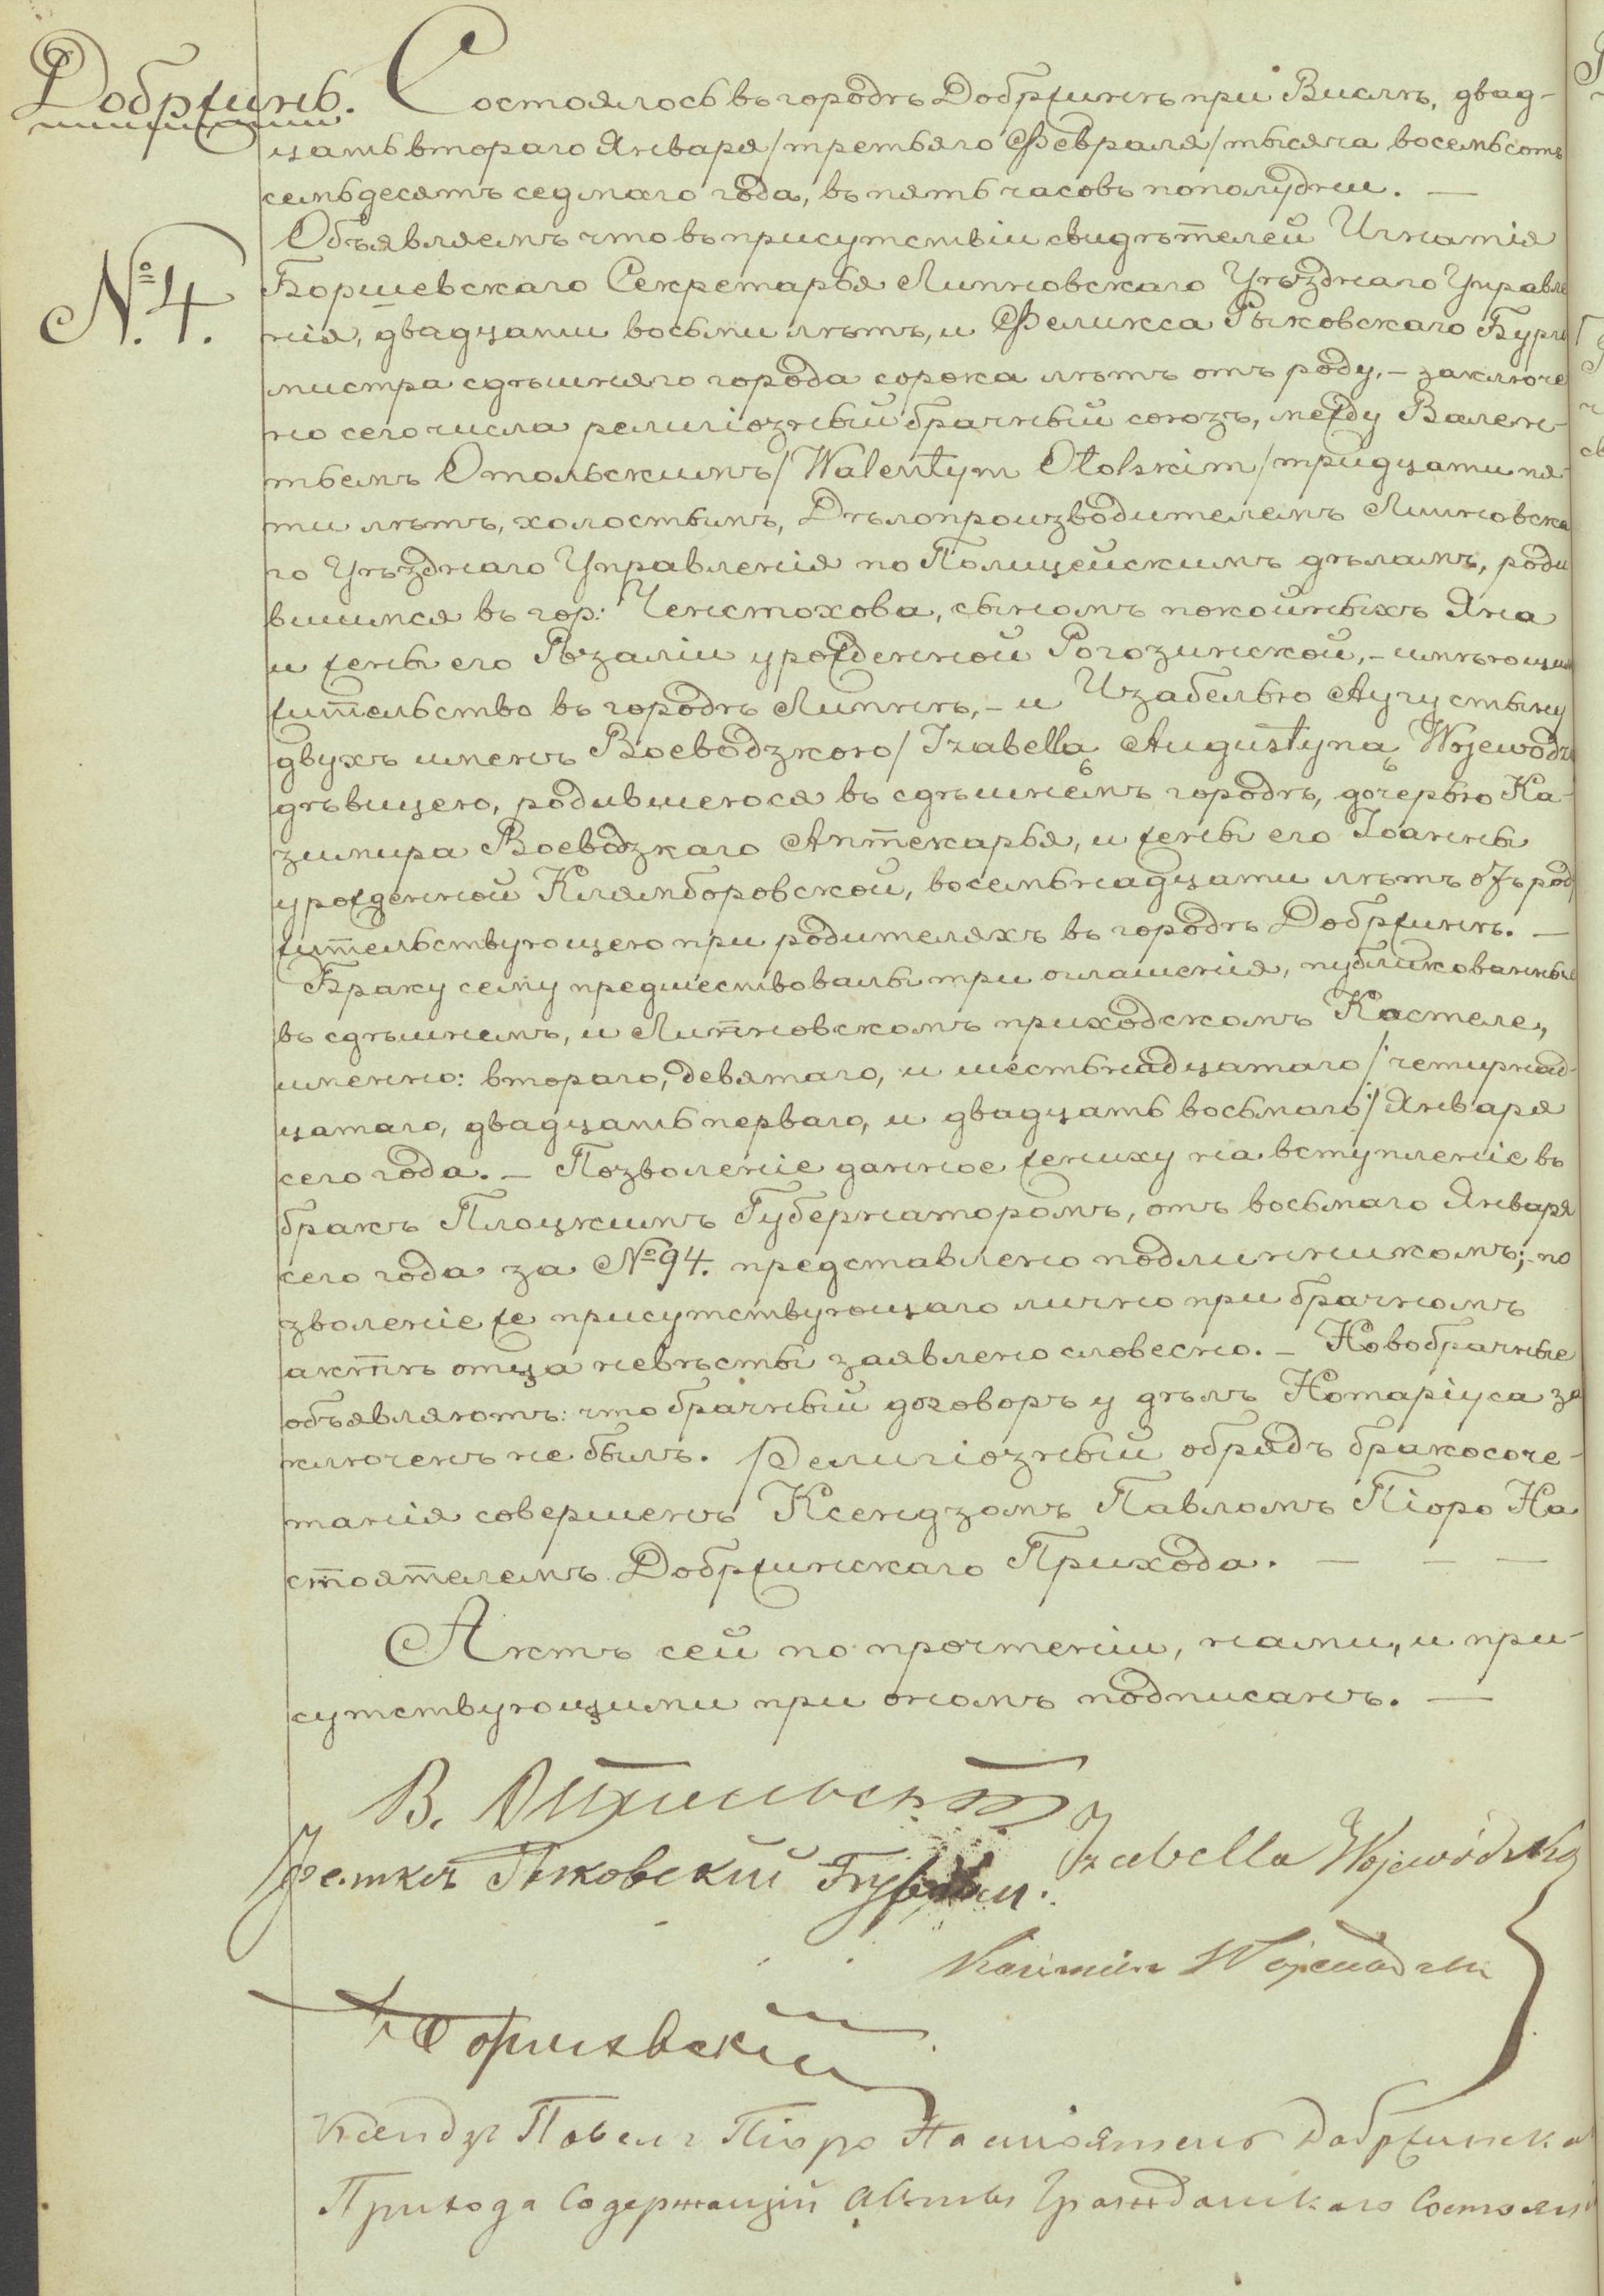 Добржинь.
Состоялось въ городѣ Добржинѣ при Вислѣ, двад-
цать втораго Января /третьяго Февраля/ тысяча восемьсотъ
семьдесятъ седмаго года, въ пять часовъ пополудни. —
Объявляемъ что въ присутствіи свидѣтелей Игнатія
№ 4.
Боршевскаго Секретарья Липновскаго Уѣзднаго Управле
нія, двадцати восьми лѣтъ, и Феликса Рыковскаго Бурго
мистра сдѣшняго города сорока лѣтъ отъ роду, – заключе
но сего числа религіозный брачный союзъ, между Вален-
тьемъ Отольскимъ /Walentym Otolskim/ тридцати пя-
ти лѣтъ, холостымъ, Дѣлопроизводителемъ Липновска
го Уѣзднаго Управленія по Полицейскимъ дѣламъ, роди
вшимся въ гор: Ченстохова, сыномъ покойныхъ Яна
и жены его Розаліи урожденной Рогозинской, – имѣющим
жительство въ городѣ Липнѣ, – и Изабельою Аугустыну
двухъ именъ Воеводзкою /Izabellą Augustyną Wojewódz
дѣвицею, родившеюся въ сдѣшнемъ городѣ, дочерью Ка-
зимира Воеводзкаго Аптекарья, и жены его Іоанны
урожденной Клямборовской, восемьнадцати лѣтъ отъ род
жительствующею при родителяхъ въ городѣ Добржинѣ. —
Браку сему предшествовалы три оглашенія, публикованные
въ сдѣшнемъ, и Липновскомъ приходскомъ Костеле,
именно: втораго, девятаго, и шестьнадцатаго /четырнад-
цатаго, двадцать перваго, и двадцать восьмаго/ Января
сего года. – Позволеніе данное жениху на вступленіе въ
бракъ Плоцкимъ Губернаторомъ, отъ восьмаго Января
сего года за № 94. представлено подлинникомъ; – по
зволеніе же присутствующаго лично при брачномъ
актѣ отца невѣсты заявлено словесно. – Новобрачные
объявляютъ: что брачный договоръ у дѣлъ Нотаріуса за
ключенъ не былъ. Религіозный обрядъ бракосоче-
танія совершенъ Ксендзомъ Павломъ Піоро На
стоятелемъ Добржинскаго Прихода. — — —
Актъ сей по прочтеніи, нами, и при-
сутствующими при ономъ подписанъ. —
В. Отольскій
Izabella Wojewódzka
Феликсъ Рыковскій
Kazimierz Wojewódzki
Боршевскій
Ксендзъ Павелъ Піоро Настоятель Добржинска
Прихода Содержащій Акты Гражданскаго Состоян